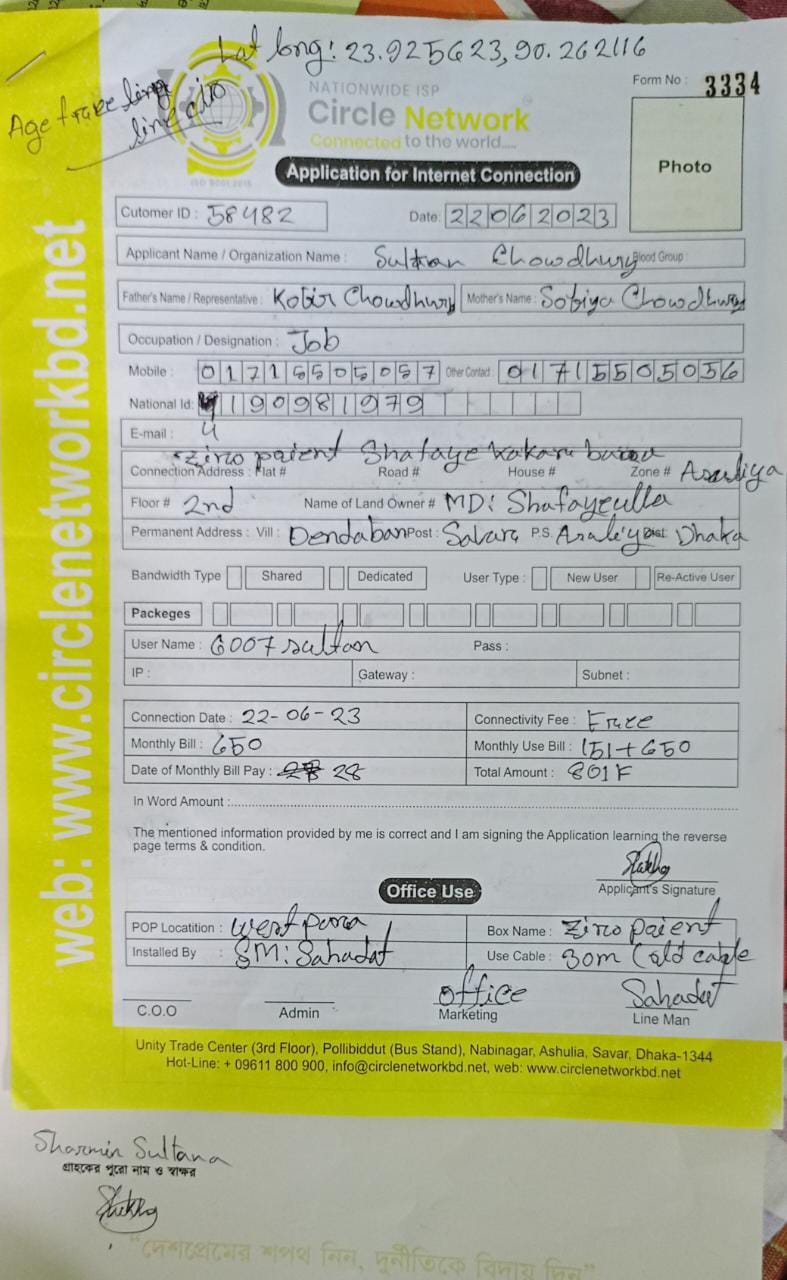 Lat long: 23.925623, 90.262116
NATIONWIDE ISP
Circle Network
Connected to the world.....
ISO 9001:2015
Form No : 3334
Photo
Application for Internet Connection
Cutomer ID : 58482 Date: 22062023
Applicant Name / Organization Name : Sultan Chowdhury Blood Group :
Father's Name / Representative : Kobir Chowdhury Mother's Name : Sobiya Chowdhury
Occupation / Designation : Job
Mobile : 01715505057 Other Contact : 01715505056
National Id: 190981979
E-mail :
Ziro paient Shafaye kakar basa
Connection Address : Flat # Road # House # Zone # Asuliya
Floor # 2nd Name of Land Owner # MD: Shafayeulla
Permanent Address : Vill: Dendaban Post: Savar, P.S. Dist Dhaka
Bandwidth Type Shared Dedicated User Type : New User Re-Active User
Packeges
User Name : 6007sultan Pass :
IP : Gateway : Subnet :
Connection Date : 22-06-23 Connectivity Fee : Free
Monthly Bill : 650 Monthly Use Bill : 151+650
Date of Monthly Bill Pay : 28 Total Amount : 801
In Word Amount :
The mentioned information provided by me is correct and I am signing the Application learning the reverse
page terms & condition.
Applicant's Signature
Office Use
POP Locatition : West para Box Name : Ziro paient
Installed By : SM: Sahadat Use Cable : 30m old cable
office Sahadat
C.O.O Admin Marketing Line Man
Unity Trade Center (3rd Floor), Pollibiddut (Bus Stand), Nabinagar, Ashulia, Savar, Dhaka-1344
Hot-Line: + 09611 800 900, info@circlenetworkbd.net, web: www.circlenetworkbd.net
web: www.circlenetworkbd.net
Sharmin Sultana
গ্রাহকের পুরো নাম ও স্বাক্ষর
“দেশপ্রেমের শপথ নিন, দুর্নীতিকে বিদায় দিন”